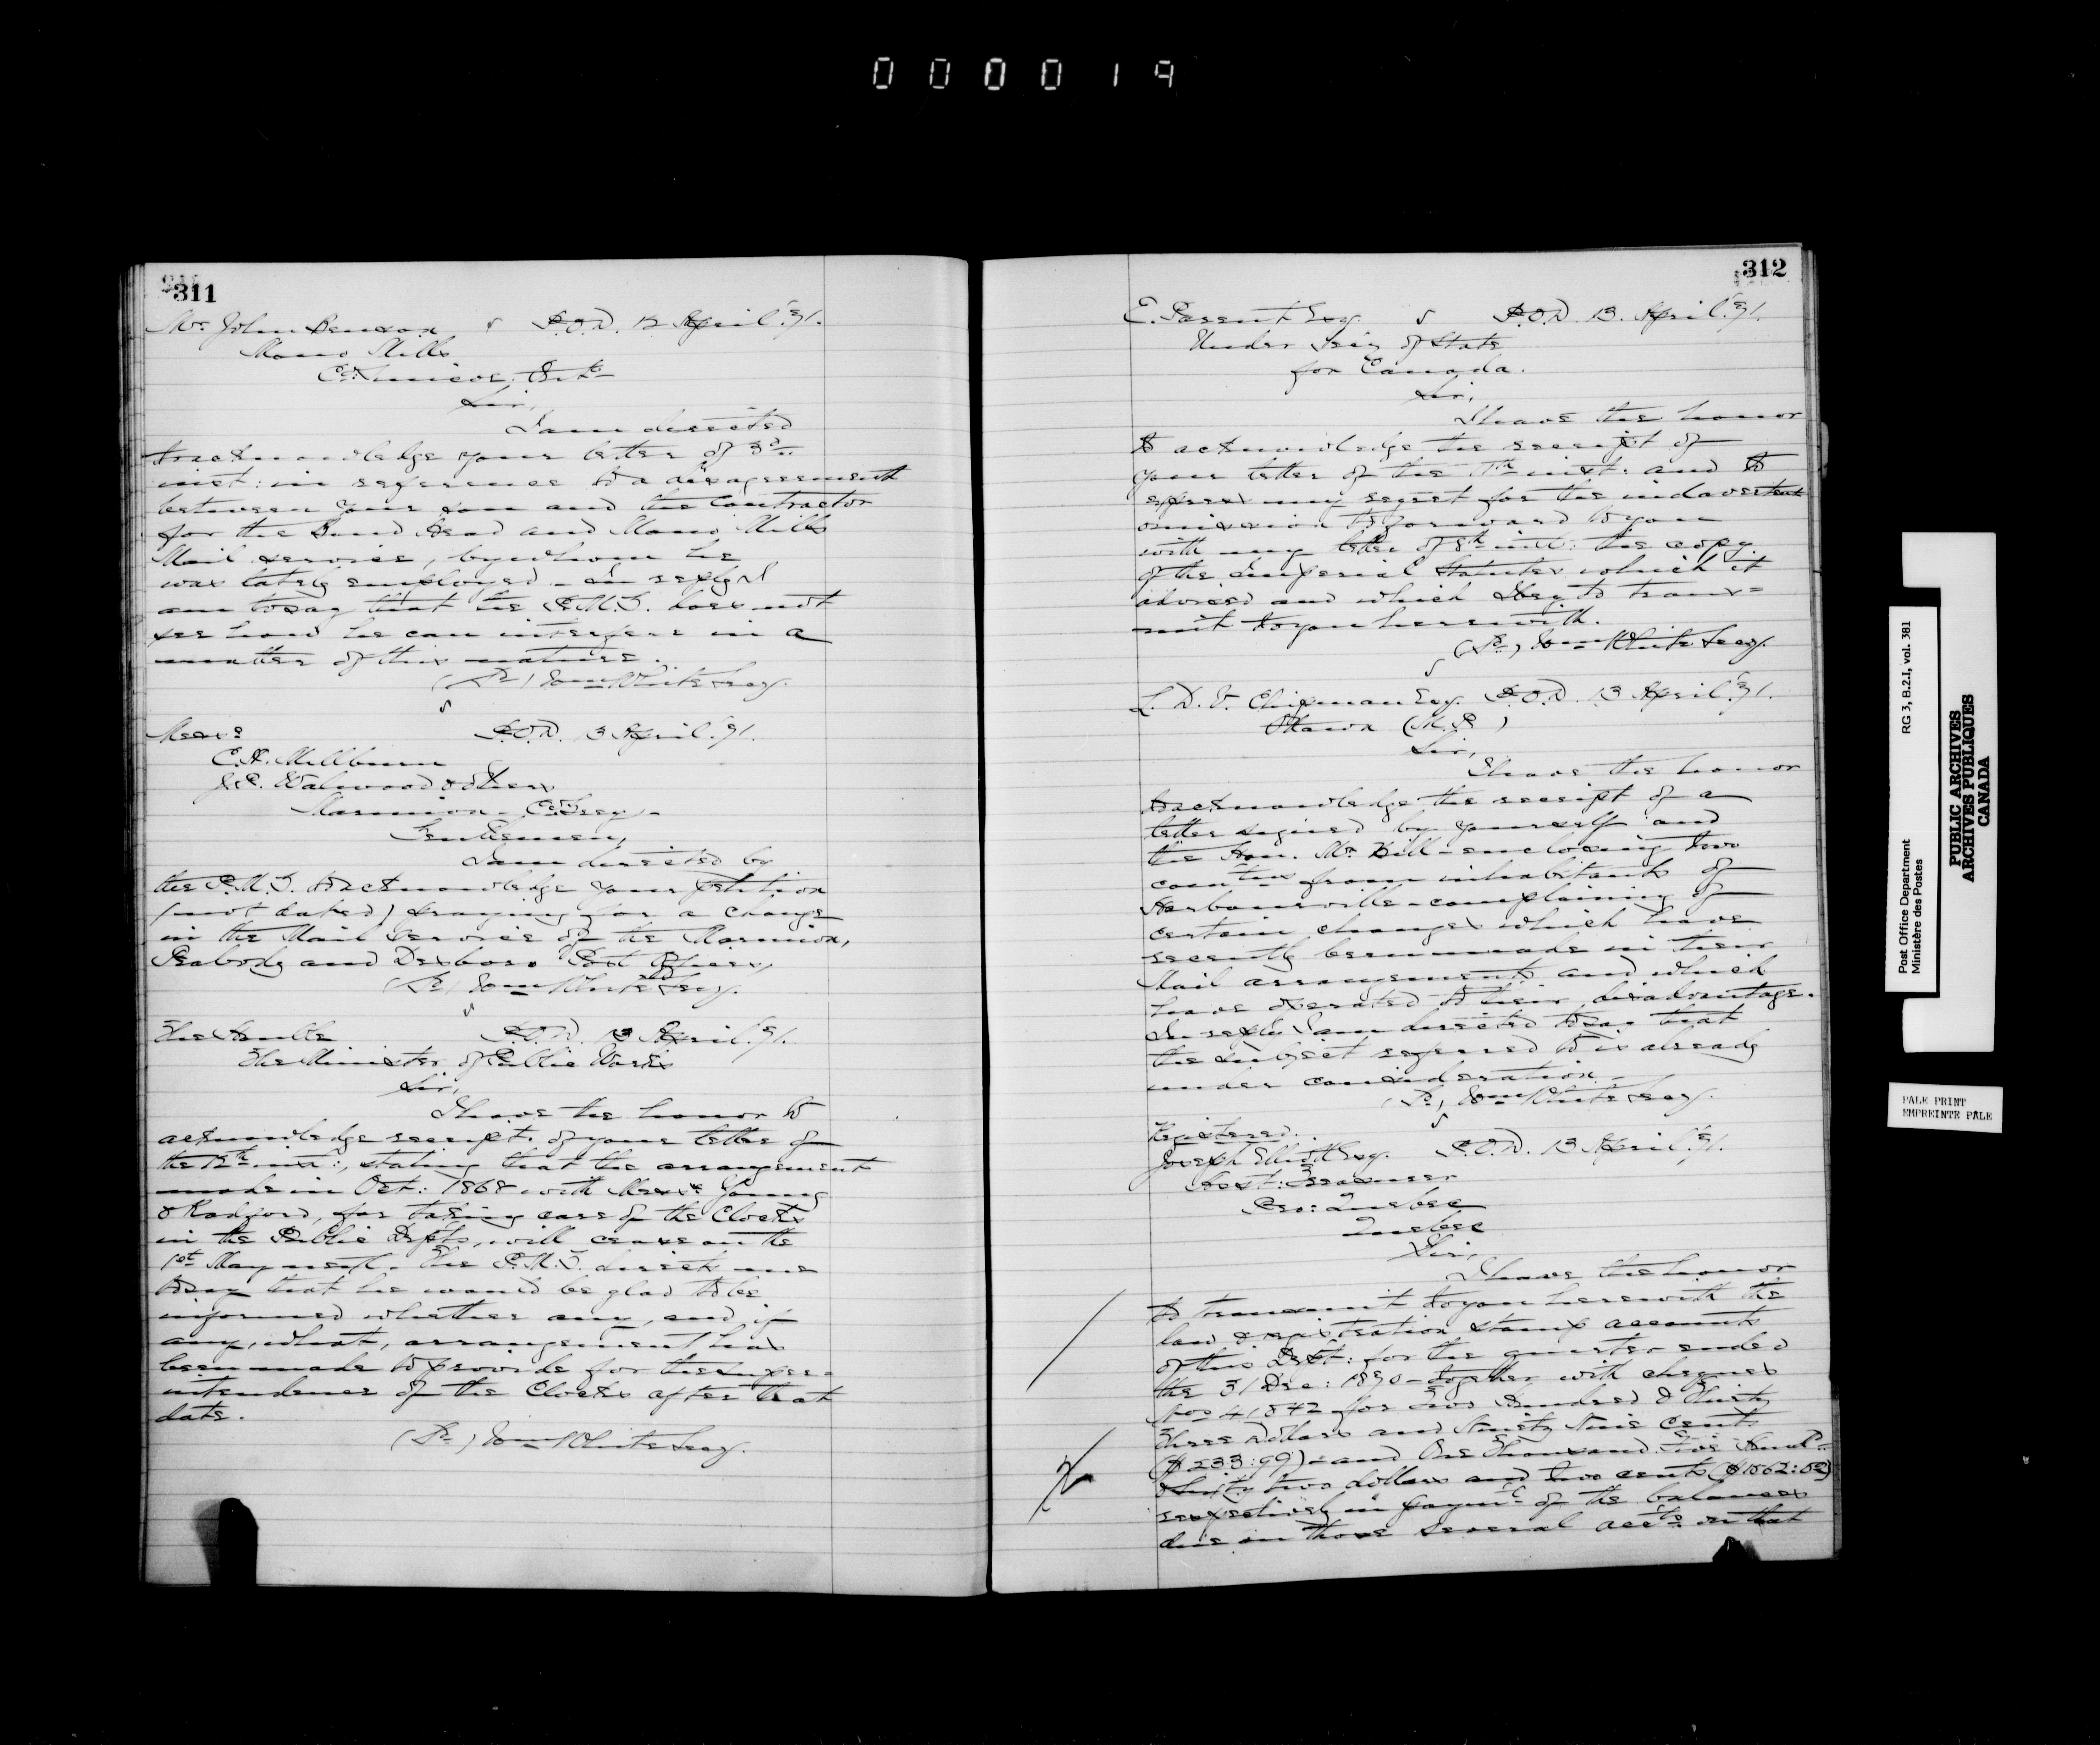 0000019
311
Mr. John Benson P.O.D. 12 April '71.
Mono Mills
Co. Simcoe. Ont.
Sir,
I am directed
to acknowledge your letter of 3rd
inst: in reference to a disagreement
between your son and the Contractor
for the Bond Head and Mono Mills
Mail service, by whom he
was lately employed - In reply I
am to say that the P.M.G. does not
see how he can interfere in a
matter of this nature.
(Sd) Wm White Secy.
Messrs P.O.D. 13 April '71.
E. A. Millburn
J. P. Walwood & others
Marmion - Co. Grey -
Gentlemen,
I am directed by
the P.M.G. to acknowledge your petition
(not dated) praying for a change
in the Mail service of the Marmion,
Peabody and Desboro Post Offices,
(Sd) Wm White Secy.
The Honble P.O.D. 13 April '71.
The Minister of Public Works
Sir,
I have the honor to
acknowledge receipt of your letter of
the 12th inst:, stating that the arrangement
made in Oct: 1868 with Messrs Young
& Radford, for taking care of the Clocks
in the Public Depts, will cease on the
1st May next. The P.M.G. directs me
to say that he would be glad to be
informed whether any, and if
any, what, arrangement has
been made to provide for the super=
intendence of the Clocks after that
date.
(Sd) Wm White Secy.
312
E. Parent Esq. P.O.D. 13 April '71.
Under Secy of State
for Canada.
Sir,
I have the honor
to acknowledge the receipt of
your letter of the 11th inst: and to
express my regret for the inadvertent
omission to forward to you
with my letter of 8th inst: the copy
of the Imperial Statutes which it
advised and which I beg to trans=
mit to you herewith.
(Sd) Wm White Secy.
L. D. V. Chipman Esq. P.O.D. 13 April '71.
Ottawa (M.P.)
Sir,
I have the honor
to acknowledge the receipt of a
letter signed by yourself and
the Hon. Mr. Bill - enclosing two
from inhabitants of
Harbourville - complaining of
certain changes which have
recently been made in their
Mail arrangements and which
have operated to their disadvantage.
In reply I am directed to say that
the subject referred to is already
under consideration -
(Sd) Wm White Secy.
Registered.
Joseph Elliott Esq. P.O.D. 13 April '71.
Asst: Treasurer
Pro: Quebec
Quebec
Sir,
I have the honor
to transmit to you herewith the
law & registration stamp accounts
of this Dept: for the quarter ended
the 31 Dec: 1870 - together with cheques
Nos 41 & 42 for Two Hundred & Thirty
Three Dollars and Ninety Nine Cents
($233:99) - and One Thousand Five Hund
& Sixty two dollars and two cents ($1562:02)
respectively in paymt of the balances
due on those several accts on that
Post Office Department
Ministère des Postes
RG 3, B.2.1, vol. 381
PUBLIC ARCHIVES
ARCHIVES PUBLIQUES
CANADA
PALE PRINT
EMPREINTE PALE